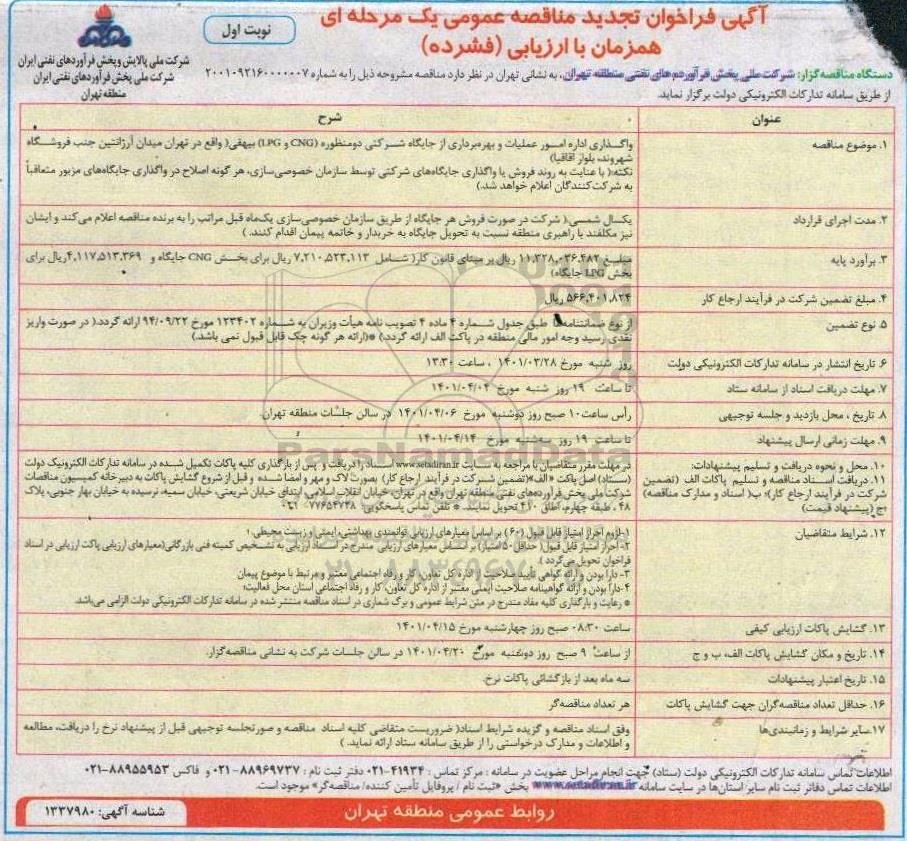 آگهی فراخوان تجدید مناقصه عمومی یک مرحله ای
همزمان با ارزیابی (فشرده)
نوبت اول
شرکت ملی پالایش و پخش فرآورده‌های نفتی ایران
شرکت ملی پخش فرآورده‌های نفتی ایران
منطقه تهران
دستگاه مناقصه‌گزار: شرکت ملی پخش فرآورده‌های نفتی منطقه تهران، به نشانی تهران در نظر دارد مناقصه مشروحه ذیل را به شماره ۲۰۰۱۰۹۲۱۶۰۰۰۰۰۷
از طریق سامانه تدارکات الکترونیکی دولت برگزار نماید.
عنوان
شرح
۱. موضوع مناقصه
واگذاری اداره امور عملیات و بهره‌برداری از جایگاه شرکتی دومنظوره (CNG و LPG) بیهقی( واقع در تهران میدان آرژانتین جنب فروشگاه
شهروند، بلوار آقاقیا)
نکته:( با عنایت به روند فروش یا واگذاری جایگاه‌های شرکتی توسط سازمان خصوصی‌سازی، هر گونه اصلاح در واگذاری جایگاه‌های مزبور متعاقباً
به شرکت‌کنندگان اعلام خواهد شد.)
۲. مدت اجرای قرارداد
یکسال شمسی.( شرکت در صورت فروش هر جایگاه از طریق سازمان خصوصی‌سازی یک‌ماه قبل مراتب را به برنده مناقصه اعلام می‌کند و ایشان
نیز مکلفند با راهبری منطقه نسبت به تحویل جایگاه به خریدار و خاتمه پیمان اقدام کنند. )
۳. برآورد پایه
مبلغ ۱۱,۳۲۸,۰۳۶,۴۸۲ ریال بر مبنای قانون کار( شامل ۷,۲۱۰,۵۲۳,۱۱۳ ریال برای بخش CNG جایگاه و ۴,۱۱۷,۵۱۳,۳۶۹ ریال برای
بخش LPG جایگاه)
۴. مبلغ تضمین شرکت در فرآیند ارجاع کار
۵۶۶,۴۰۱,۸۲۴ ریال
۵. نوع تضمین
از نوع ضمانتنامه‌ها طبق جدول شماره ۴ ماده ۴ تصویب نامه هیأت وزیران به شماره ۱۲۳۴۰۲ مورخ ۹۴/۰۹/۲۲ ارائه گردد.( در صورت واریز
نقدی رسید وجه امور مالی منطقه در پاکت الف ارائه گردد.) *(ارائه هر گونه چک قابل قبول نمی باشد.)
۶. تاریخ انتشار در سامانه تدارکات الکترونیکی دولت
روز شنبه مورخ ۱۴۰۱/۰۳/۲۸ ، ساعت ۱۳:۳۰
۷. مهلت دریافت اسناد از سامانه ستاد
تا ساعت ۱۹ روز شنبه مورخ ۱۴۰۱/۰۴/۰۴
۸. تاریخ ، محل بازدید و جلسه توجیهی
رأس ساعت ۱۰ صبح روز دوشنبه مورخ ۱۴۰۱/۰۴/۰۶ در سالن جلسات منطقه تهران
۹. مهلت زمانی ارسال پیشنهاد
تا ساعت ۱۹ روز سه‌شنبه مورخ ۱۴۰۱/۰۴/۱۴
۱۰. محل و نحوه دریافت و تسلیم پیشنهادات:
۱۱. دریافت اسناد مناقصه و تسلیم پاکات الف (تضمین
شرکت در فرآیند ارجاع کار)؛ ب( اسناد و مدارک مناقصه)
؛ج (پیشنهاد قیمت)
در مهلت مقرر متقاضیان با مراجعه به سایت www.setadiran.ir اسناد را دریافت و پس از بارگذاری کلیه پاکات تکمیل شده در سامانه تدارکات الکترونیک دولت
(ستاد) اصل پاکت «الف»(تضمین شرکت در فرآیند ارجاع کار) بصورت لاک و مهر و امضا شده و قبل از شروع گشایش پاکات به دبیرخانه کمیسیون مناقصات
شرکت ملی پخش فرآورده‌های نفتی منطقه تهران واقع در تهران، خیابان انقلاب اسلامی، ابتدای خیابان شریعتی، خیابان سمیه، نرسیده به خیابان بهار جنوبی، پلاک
۴۸ ، طبقه چهارم، اطاق ۴۰۱ تحویل نمایند. * تلفن تماس پاسخگویی: ۷۷۶۵۴۷۳۸-۰۲۱
۱۲. شرایط متقاضیان
۱-لزوم احراز امتیاز قابل قبول (۶۰) بر اساس معیارهای ارزیابی توانمندی بهداشتی، ایمنی و زیست محیطی ؛
۲- احراز امتیاز قابل قبول( حداقل ۵۰ امتیاز) بر اساس معیارهای ارزیابی مندرج در اسناد ارزیابی به تشخیص کمیته فنی بازرگانی(معیارهای ارزیابی پاکت ارزیابی در اسناد
فراخوان تحویل می‌گردد ).
۳- دارا بودن و ارائه گواهی تأیید صلاحیت از اداره کل تعاون، کار و رفاه اجتماعی معتبر و مرتبط با موضوع پیمان
۴-دارا بودن و ارائه گواهینامه صلاحیت ایمنی معتبر از اداره کل تعاون، کار و رفاه اجتماعی استان محل فعالیت؛
* رعایت و بارگذاری کلیه مفاد مندرج در متن شرایط عمومی و برگ شماری در اسناد مناقصه منتشر شده در سامانه تدارکات الکترونیکی دولت الزامی می‌باشد.
۱۳. گشایش پاکات ارزیابی کیفی
ساعت ۰۸:۳۰ صبح روز چهارشنبه مورخ ۱۴۰۱/۰۴/۱۵
۱۴. تاریخ و مکان گشایش پاکات الف، ب و ج
از ساعت ۹ صبح روز دوشنبه مورخ ۱۴۰۱/۰۴/۲۰ در سالن جلسات شرکت به نشانی مناقصه‌گزار.
۱۵. تاریخ اعتبار پیشنهادات
سه ماه بعد از بازگشائی پاکات نرخ.
۱۶. حداقل تعداد مناقصه‌گران جهت گشایش پاکات
هر تعداد مناقصه‌گر
۱۷.سایر شرایط و زمانبندی‌ها
وفق اسناد مناقصه و گزیده شرایط اسناد( ضروریست متقاضی کلیه اسناد مناقصه و صورتجلسه توجیهی قبل از پیشنهاد نرخ را دریافت، مطالعه
و اطلاعات و مدارک درخواستی را از طریق سامانه ستاد ارائه نماید. )
اطلاعات تماس سامانه تدارکات الکترونیکی دولت (ستاد) جهت انجام مراحل عضویت در سامانه : مرکز تماس : ۴۱۹۳۴-۰۲۱ دفتر ثبت نام : ۸۸۹۶۹۷۳۷-۰۲۱ و فاکس ۸۸۹۵۵۹۵۳-۰۲۱
اطلاعات تماس دفاتر ثبت نام سایر استان‌ها در سایت سامانه www.setadiran.ir بخش «ثبت نام / پروفایل تأمین کننده/ مناقصه‌گر» موجود است.
روابط عمومی منطقه تهران
شناسه آگهی: ۱۳۳۷۹۸۰
ParsNamadData